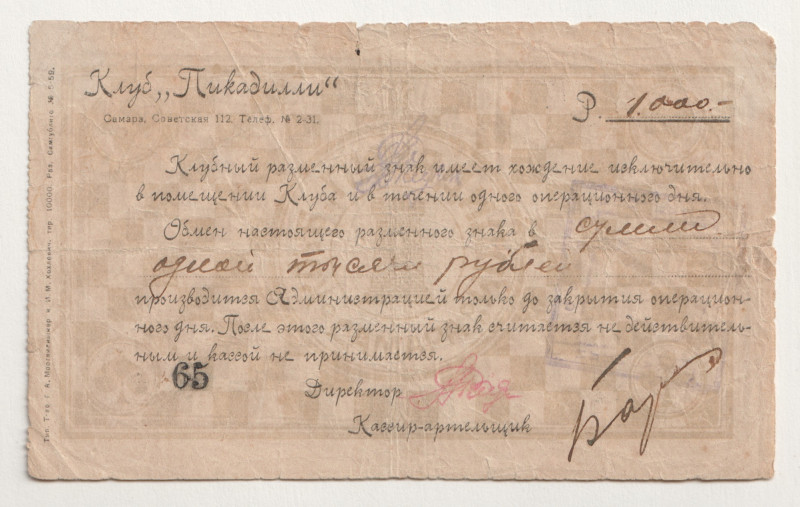 Клуб „Пикадилли“
Самара, Советская 112. Телеф. № 2-31.
Р. 1.000.-
Клубный разменный знак имеет хождение исключительно
в помещении Клуба и в течении одного операционного дня.
Обмен настоящего разменного знака в сумме
одной тысячи рублей
производится Администрацией только до закрытия операцион-
ного дня. После этого разменный знак считается не действитель-
ным и кассой не принимается.
65
Директор
Кассир-артельщик